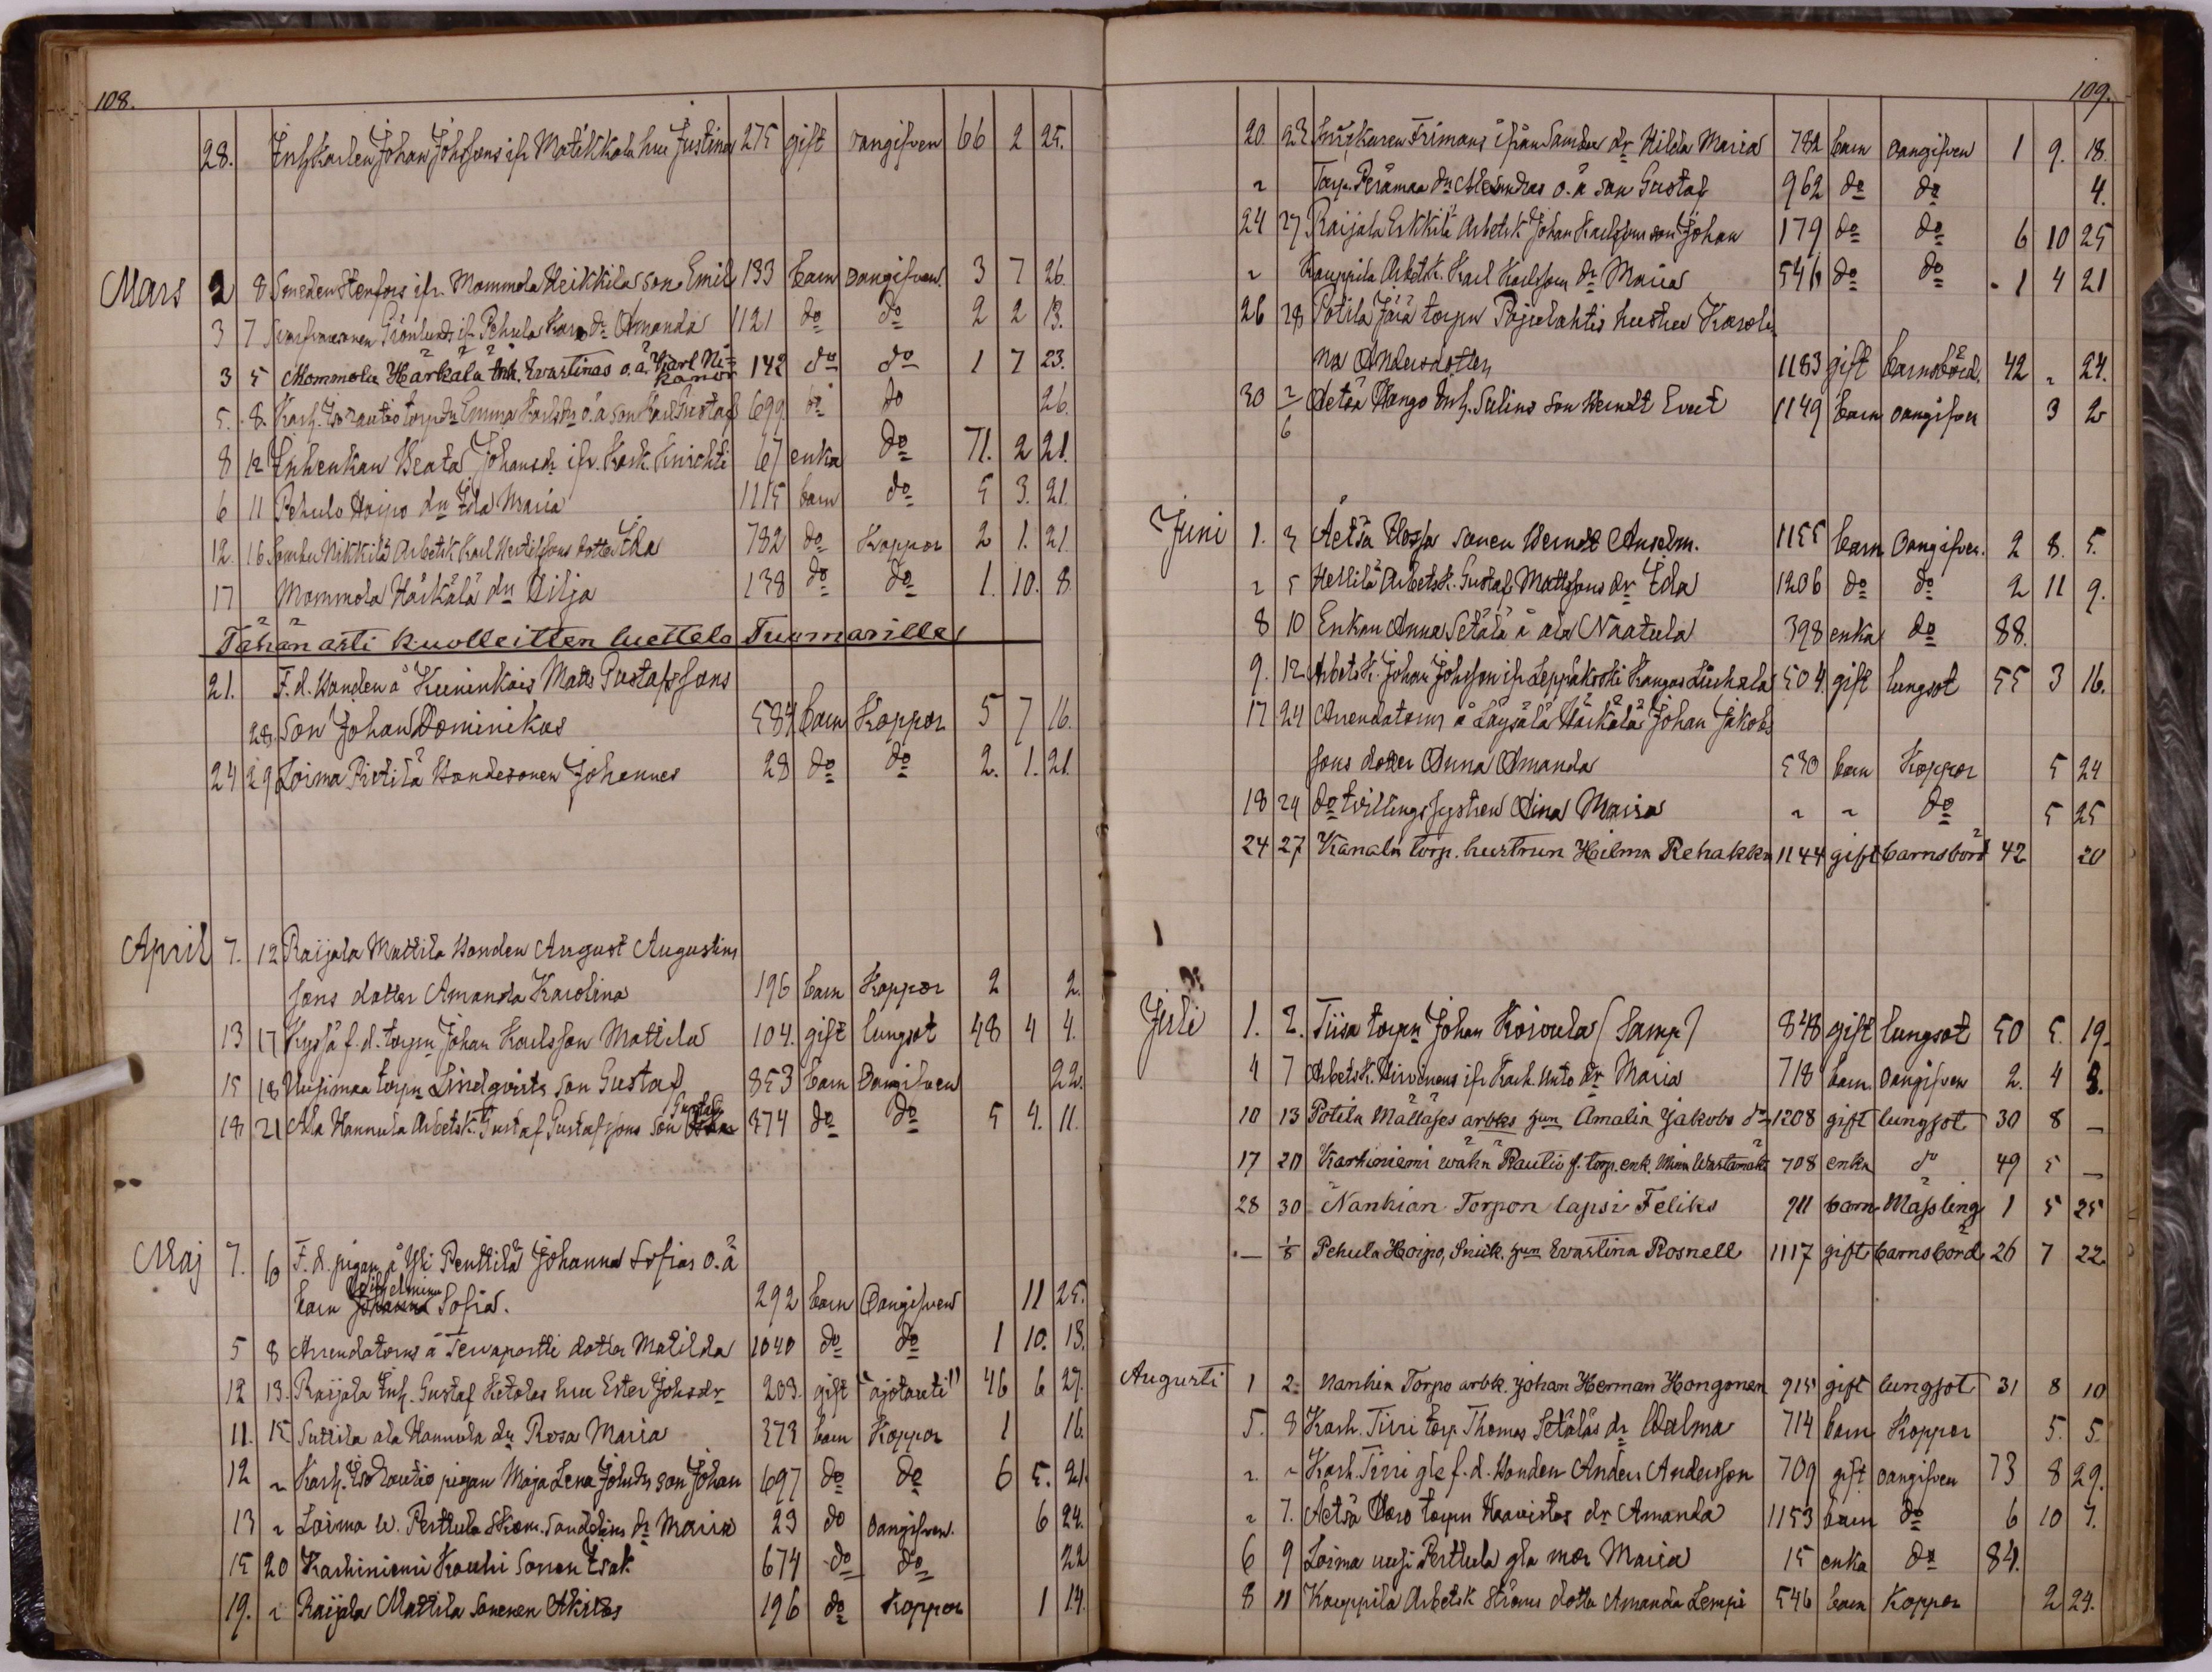 108.
28. Johan Johssons ifr Matikkala hru Justina 275 gift oangifven 66 2 25.
Mars 2 8 Smeden Stenfors ifr. Mommola Heikkilä son Emil 133 barn oangifven 3 7 26.
3 7 Grönlunds ifr Pehula dr Amanda 1121 do do 2 2 13.
3 5 Mommola Härkälä Inh. Evastinas o.ä. Karl Ni= 142 do do 1 7 23.
kanor
5. 8. Karh. Iso rautio torp dr Emma Karlsdr o.ä son Karl Gustaf 699 do do 26.
8 12 Inhenkan Beata Johansdr ifr. Kark. Knichti 67 enka do 71. 2 21.
6 11 Pehula Hoipo dr Ida Maria 1115 barn do 5 3. 21.
12. 16. Nikkilä Arbetsk Karl dotter Ida 782 do Koppor 2 1. 21.
17 Mommola Härkälä dr Lilja 138 do do 1. 10. 8
Tähän asti kuolleitten luettelo Tuomarille
21. F. d. Bonden å Kuninkais Matts Gustafssons
28. son Johan Dominikus 584 barn Koppor 5 7 16.
24 29 Loima Pietilä Bondesonen Johannes 28 do do 2. 1. 21.
April 7. 12 Raijala Mattila Bonden August Augustins
sons dotter Amanda Karolina 196 barn Koppor 2 2.
13 17 f. d. torpn Johan Karlsson Mattila 104. gift lungsot 48 4 4.
15 18 Uusimaa torpn Lindqvists son Gustaf 853 barn Oangifven 22.
18 21 Ala Hannula Arbetsk. Gustaf Gustafssons son Gustaf 374 do do 5 4. 11.
Maj 7. 10 F. d. pigan å Yli Penttilä Johanna Sofias o.ä
Vilhelmina
barn Johanna Sofia. 292 barn Oangifven 11 25.
5 8 Arrendatorns å Tervaportti dotter Matilda 1040 do do 1 10. 13.
12 13. Raijala Inh. Gustaf Ketolas hru Ester Johsdr 203. gift "ajotauti" 46 6 27.
11. 15 Suttila ala Hannula dr Rosa Maria 373 barn Koppor 1 16.
12 " Karh. Iso Rautio pigan Maja Lena Johsdr son Johan 697 do do 6 5. 21.
13 " Loima w. Perttula Skom. Sandelins dr Maria 23 do oangifven. 6 24.
15 20 Karhiniemi Kouhi sonen Isak 674 do do 22
19. " Raijala Mattila sonen 196 do Koppor 1 14.
109.
20. 23. Inhyskaren Frimans ifrån Sambu dr Hilda Maria 782 barn oangifven 1 9. 18.
" Torp. Perämaa dr Alexandras o.ä son Gustaf 962 do do 4.
24 27. Raijala Erkkilä Arbetsk Johan Karlssons son Johan 179 do do 6 10 25
" Kauppila Arbetsk. Karl Karlsson dr Maria 546 do do 1 4 21
26 28 Potila Järä torpn Pajulahtis hustru Karoli
na Andersdotter 1183 gift barnsbörd. 42 " 24.
30 2/6 Äetsä Hango Inh. Salins son Werndt Evert 1149 barn oangifven 3 2
Juni 1. 3 Äetsä Uotsa sonen Werndt Anselm. 1155 barn Oangifven. 2 8. 5.
" 5 Hellilä Arbetsk. Gustaf Mattssons dr Ida 1206 do do 2 11 9.
8 10 Enkan Anna Setälä å ala Naatula 398 enka do 88.
9. 12. Arbetsk. Johan Johsson ifr Leppäkoski Kangas Liuhala 504. gift lungsot 55 3 16.
17 24 Arrendatorns å Laysälä Härkälä Johan Jakobs
sons dotter Anna Amanda 530 barn Koppor 5 24
18 24 do tvillingssystren Aina Maria " " do 5 25
24 27 Kanala torp. hustrun Hilma Rehakka 1144 gift barnsbörd 42 20
Juli 1. 2. Tiisa torpn Johan Koivula (Samp) 848 gift lungsot 50 5. 19.
4 7 Arbetsk. Hirvonens ifr Karh. Unto dr Maria 718 barn oangifven 2. 4 3.
10 13 Potila Mattäses arbks hun Amalia Jakobs dr 1208 gift lungsot 30 8 —
17 20 Karhiniemi waha Rautio f. torp. enk. Miina Wartamaki 708 enka do 49 5 —
28 30 Nanhian Torpon lapsi Feliks 911 barn Mässling 1 5 25
— 1/8 Pehula Hoipo, Snick. hun Evastina Rosnell 1117 gift barnsbörd 26 7 22.
Augusti 1 2. Nanhia Torpo arbk. Johan Herman Hongonen 915 gift lungsot 31 8 10
5. 8 Karh. Tiiri torp Thomas Setäläs dr Walma 714 barn Koppor 5. 5.
" " Karh. Tiiri gle f. d. Bonden Anders Andersson 709 gift oangifven 73 8 29.
" 7. Äetsä torpn Haavistos dr Amanda 1153 barn do 6 10 7.
6 9 Loima uusi Perttula gla mor Maria 15 enka do 84.
8 11 Kauppila Arbetsk Ströms dotter Amanda Lempi 546 barn Koppor 2 24.